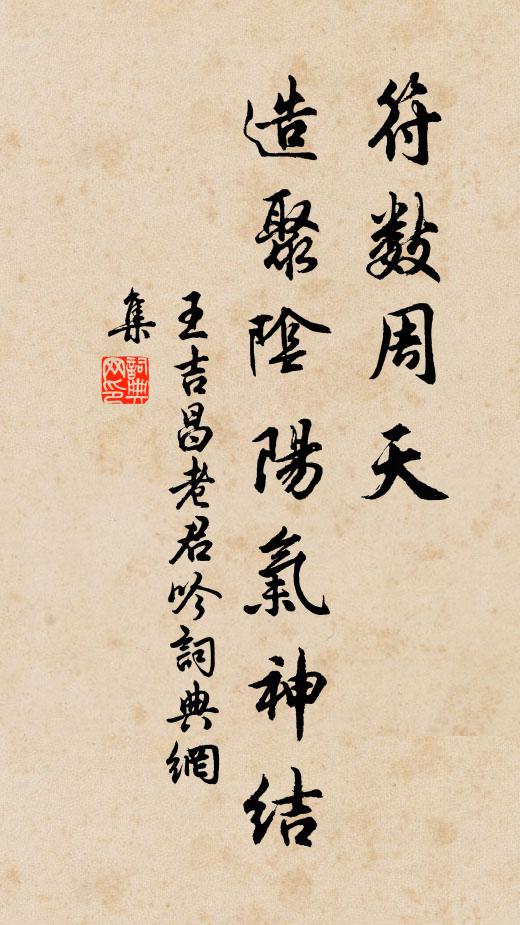 符數周天
造聚陰陽氣神結
王吉昌老君吟詞典網
集
詞典
网印